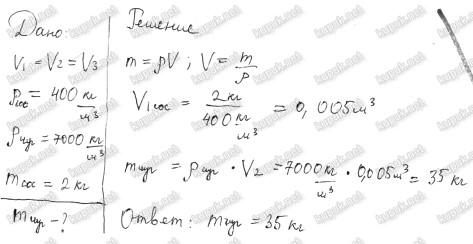 Дано:
V₁ = V₂ = V₃
ρсос = 400 кг/м³
ρчуг = 7000 кг/м³
mсос = 2 кг
mчуг - ?
Решение
m = ρV ; V = m/ρ
V₁сос = 2кг / 400 кг/м³ = 0,005м³
mчуг = ρчуг · V₂ = 7000 кг/м³ · 0,005м³ = 35 кг
Ответ: mчуг = 35 кг